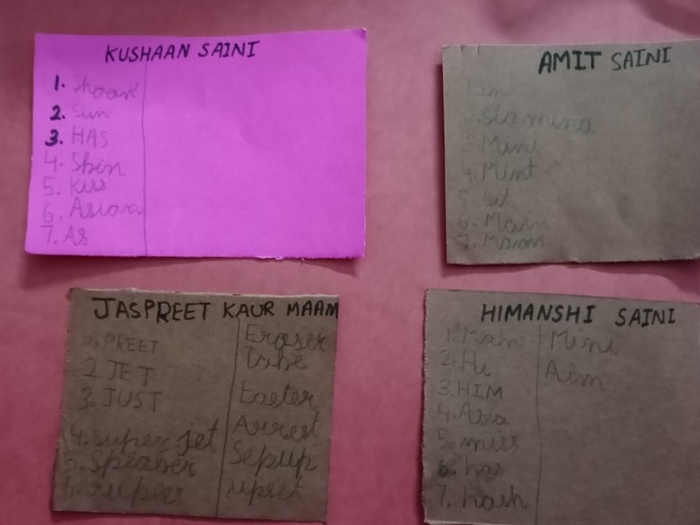 KUSHAAN SAINI
1. Shaan
2. Sun
3. HAS
4. Shin
5. Kiss
6. Asian
7. As
AMIT SAINI
3. Mini
4. Mint
5. sit
6. Main
7. Maam
JASPREET KAUR MAAM
1. PREET
2. JET
3. JUST
4. super jet
5. Speaker
6. rupees
Eraser
Tape
Easter
Arrest
Sepup
upset
HIMANSHI SAINI
1. Main
2. Hi
3. HIM
4. Asia
5. miss
6. has
7. hash
Mini
Aim